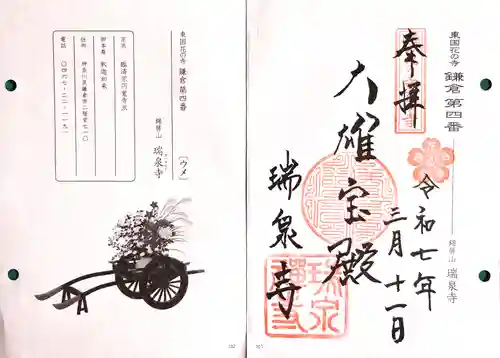 東国花の寺 鎌倉第四番
〔ウメ〕
錦屏山 瑞泉寺
宗派 臨済宗円覚寺派
御本尊 釈迦如来
住所 神奈川県鎌倉市二階堂七一〇
電話 〇四六七-二二-一一九一
東国花の寺 鎌倉 第四番
錦屏山 瑞泉寺
奉拝
令和七年
三月十一日
大雄宝殿
瑞泉寺